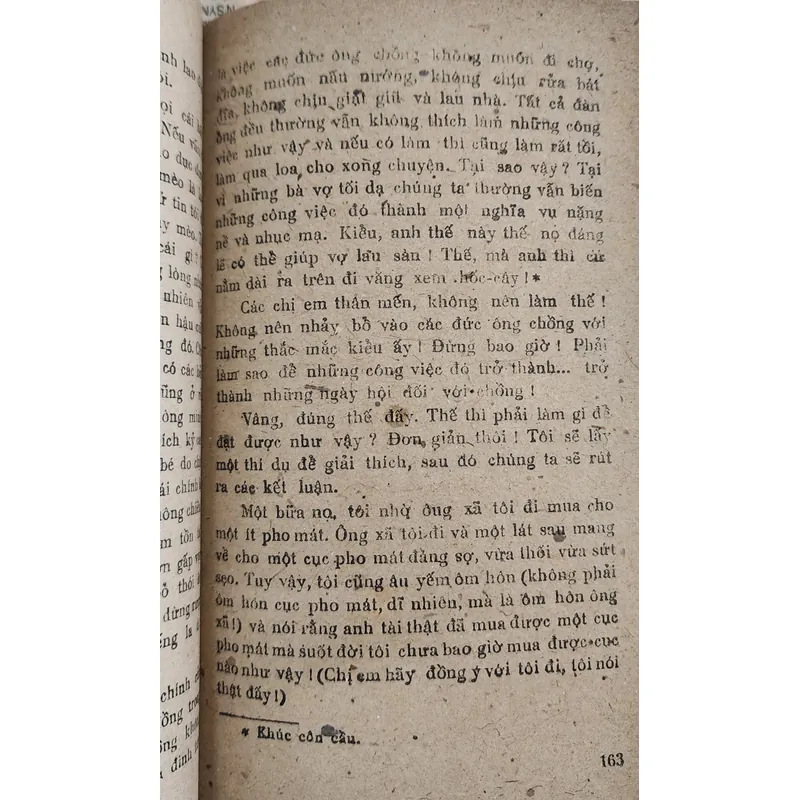 là việc các đức ông chồng không muốn đi chợ,
không muốn nấu nướng, không chịu rửa bát
đĩa, không chịu giặt giũ và lau nhà. Tất cả đàn
ông đều thường vẫn không thích làm những công
việc như vậy và nếu có làm thì cũng làm rất tồi,
làm qua loa cho xong chuyện. Tại sao vậy? Tại
vì những bà vợ tối dạ chúng ta thường vẫn biến
những công việc đó thành một nghĩa vụ nặng
nề và nhục mạ. Kiểu, anh thế này thế nọ đáng
lẽ có thể giúp vợ lau sàn! Thế, mà anh thì cứ
nằm dài ra trên đi văng xem hốc-cây!*
Các chị em thân mến, không nên làm thế!
Không nên nhảy bổ vào các đức ông chồng với
những thắc mắc kiểu ấy! Đừng bao giờ! Phải
làm sao để những công việc đó trở thành... trở
thành những ngày hội đối với chồng!
Vâng, đúng thế đấy. Thế thì phải làm gì để
đạt được như vậy? Đơn giản thôi! Tôi sẽ lấy
một thí dụ để giải thích, sau đó chúng ta sẽ rút
ra các kết luận.
Một bữa nọ, tôi nhờ ông xã tôi đi mua cho
một ít pho mát. Ông xã tôi đi và một lát sau mang
về cho một cục pho mát đáng sợ, vừa thối vừa sứt
sẹo. Tuy vậy, tôi cũng âu yếm ôm hôn (không phải
ôm hôn cục pho mát, dĩ nhiên, mà là ôm hôn ông
xã!) và nói rằng anh tài thật đã mua được một cục
pho mát mà suốt đời tôi chưa bao giờ mua được cục
nào như vậy! (Chị em hãy đồng ý với tôi đi, tôi nói
thật đấy!)
* Khúc côn cầu.
163